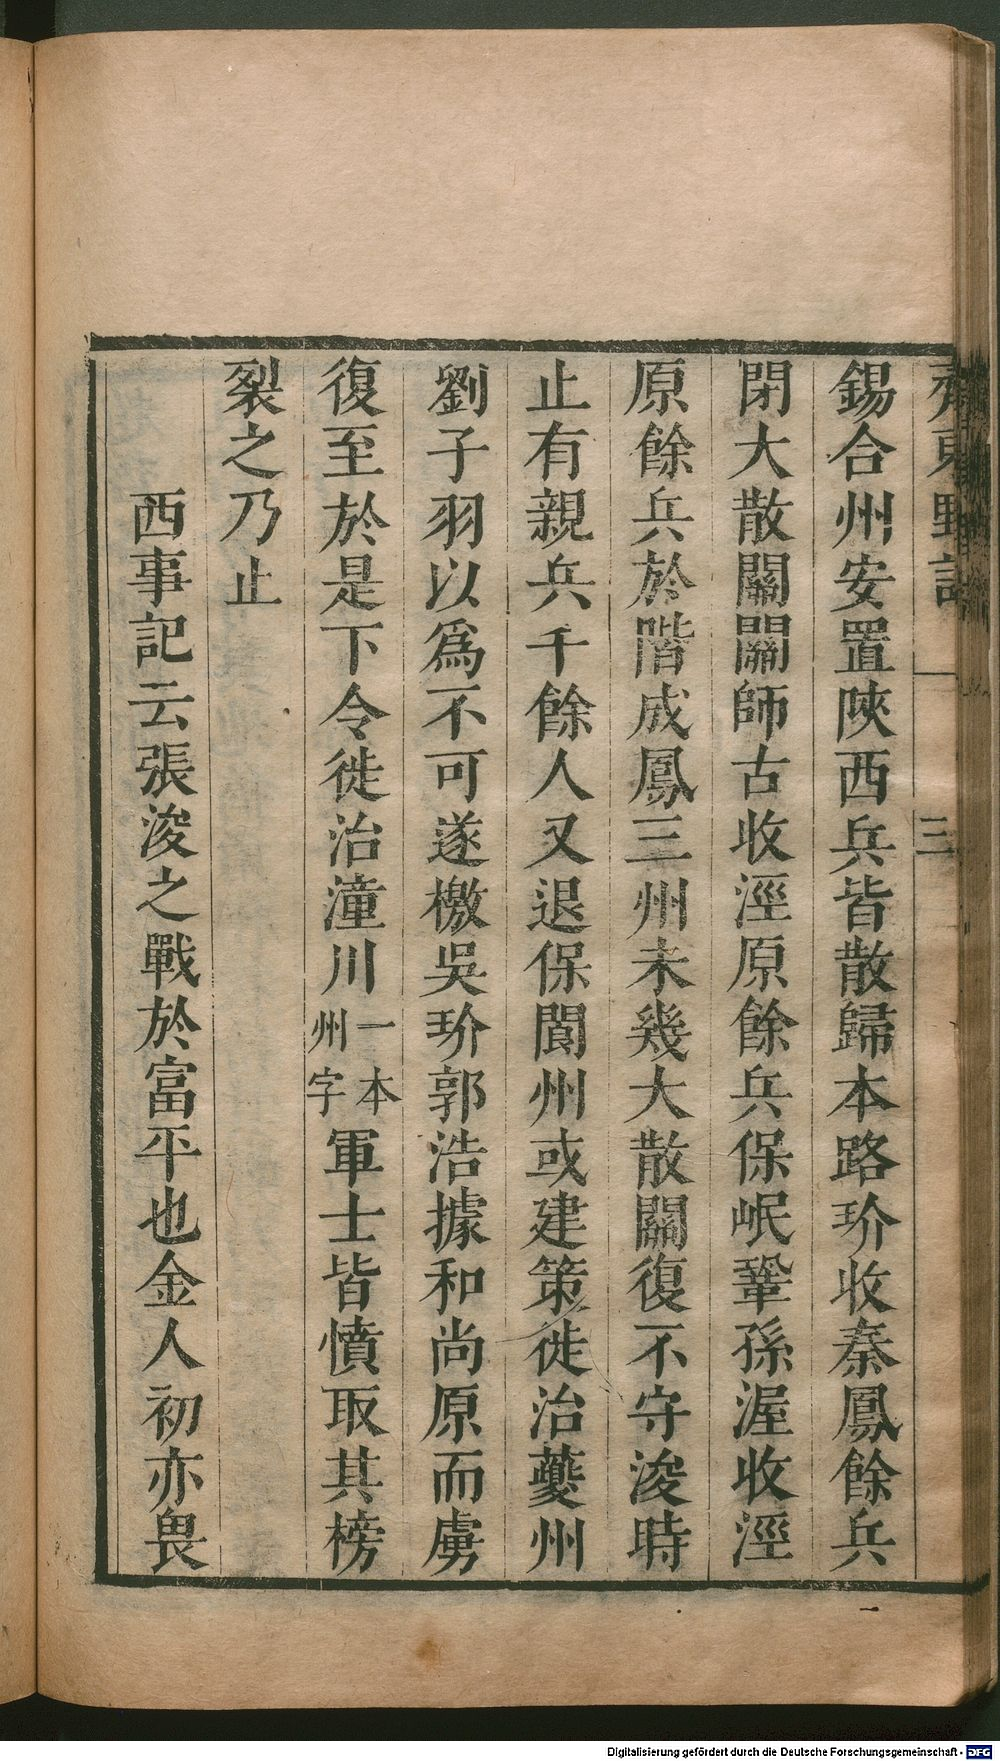 齊東野語 三
錫合州安置陝西兵皆散歸本路玠收秦鳳餘兵
閉大散關關師古收涇原餘兵保岷鞏孫渥收涇
原餘兵於階成鳳三州未幾大散關復不守浚時
止有親兵千餘人又退保閬州或建策徙治夔州
劉子羽以爲不可遂檄吳玠郭浩據和尚原而虜
復至於是下令徙治潼川一本州字軍士皆憤取其榜
裂之乃止
西事記云張浚之戰於富平也金人初亦畏
Digitalisierung gefördert durch die Deutsche Forschungsgemeinschaft - DFG